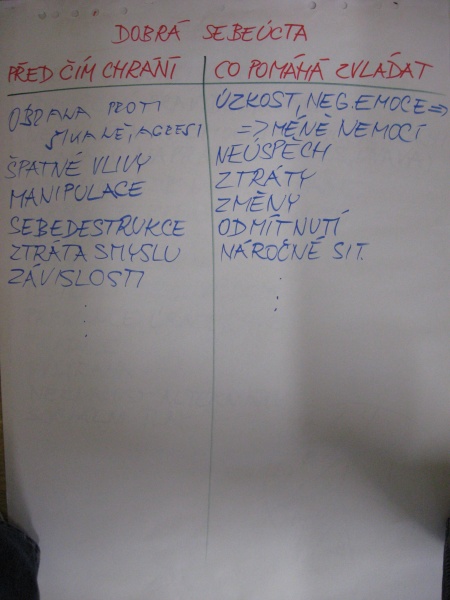 DOBRÁ SEBEÚCTA
PŘED ČÍM CHRÁNÍ
OBRANA PROTI
ŠIKANĚ, AGRESI
ŠPATNÉ VLIVY
MANIPULACE
SEBEDESTRUKCE
ZTRÁTA SMYSLU
ZÁVISLOSTI
CO POMÁHÁ ZVLÁDAT
ÚZKOST, NEG. EMOCE =>
=> MÉNĚ NEMOCÍ
NEÚSPĚCH
ZTRÁTY
ZMĚNY
ODMÍTNUTÍ
NÁROČNÉ SIT.